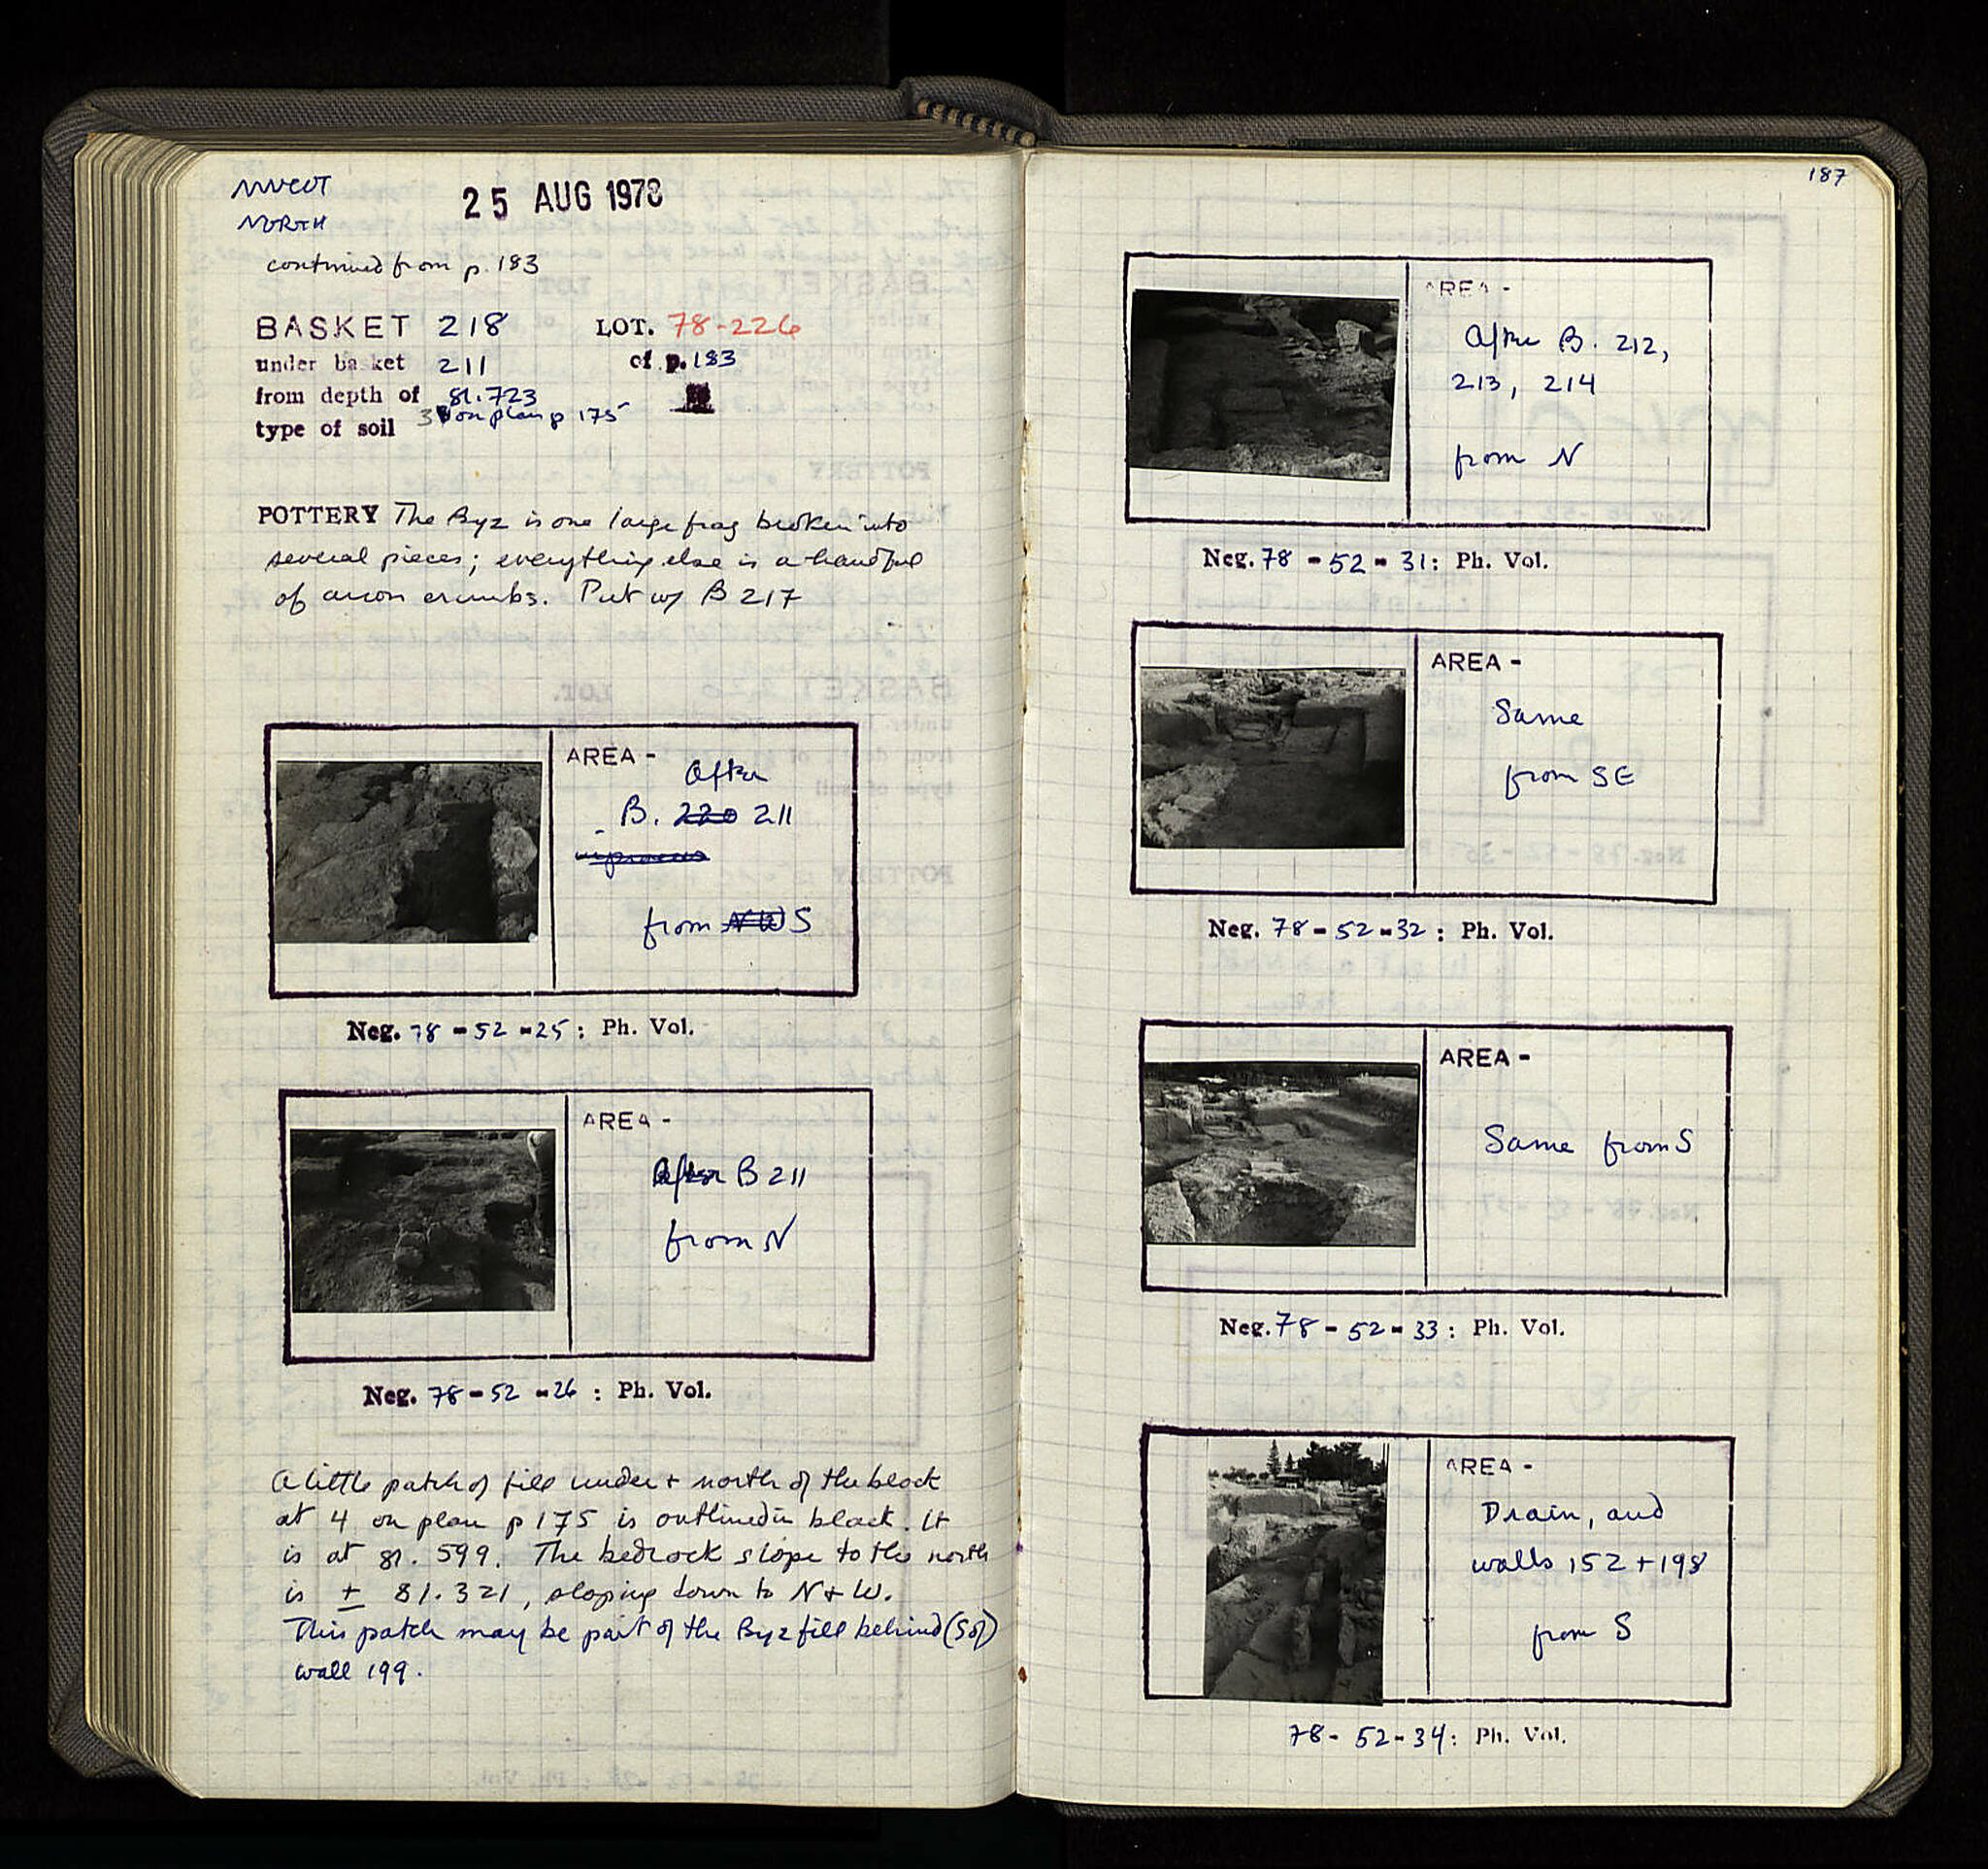 25 AUG 1978
NORTH
continued from p. 183
BASKET 218 LOT. 78-226
under basket 211 cf. p. 183
from depth of 81.723
type of soil 3 on plan p 175
POTTERY The Byz is one large frag broken into
several pieces; everything else is a handful
of crumbs. Put w/ B 217
AREA -
After
B. 220 211
in process
from NW S
Neg. 78-52-25: Ph. Vol.
AREA -
After B 211
from N
Neg. 78-52-26: Ph. Vol.
A little patch of fill under + north of the block
at 4 on plan p 175 is outlined in black. It
is at 81.599. The bedrock slope to the north
is ± 81.321, sloping down to N + W.
This patch may be part of the Byz fill behind (S of)
wall 199.
187
AREA -
After B. 212,
213, 214
from N
Neg. 78-52-31: Ph. Vol.
AREA -
Same
from SE
Neg. 78-52-32: Ph. Vol.
AREA -
Same from S
Neg. 78-52-33: Ph. Vol.
AREA -
Drain, and
walls 152 + 198
from S
78-52-34: Ph. Vol.